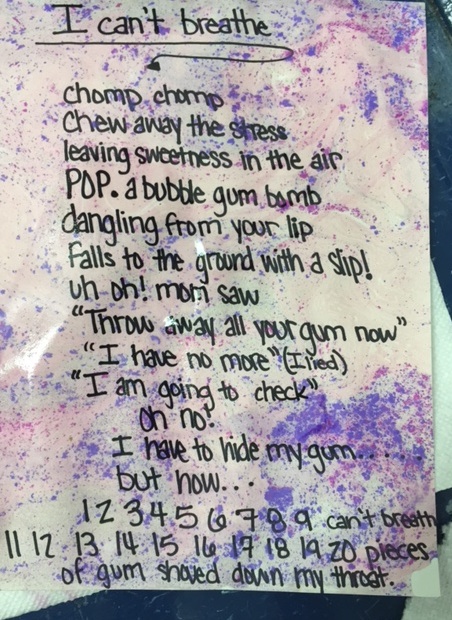 I can't breathe
chomp chomp
Chew away the stress
leaving sweetness in the air
POP. a bubble gum bomb
dangling from your lip
Falls to the ground with a slip!
uh oh! mom saw
"Throw away all your gum now"
"I have no more" (I lied)
"I am going to check"
Oh no!
I have to hide my gum.....
but how...
1 2 3 4 5 6 7 8 9 can't breath
11 12 13 14 15 16 17 18 19 20 pieces
of gum shoved down my throat.